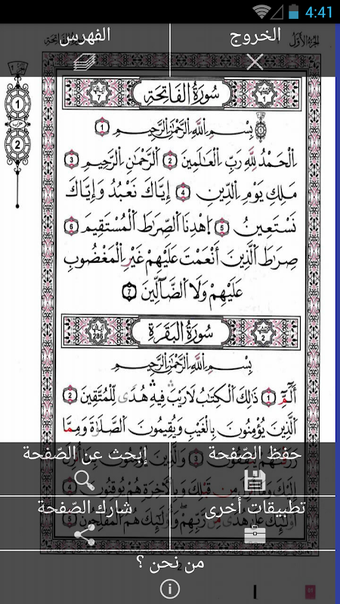 4:41
الخروج
الفهرس
سُورَةُ الفَاتِحَةِ
بِسْمِ اللَّهِ الرَّحْمَٰنِ الرَّحِيمِ ①
اِ۬لْحَمْدُ لِلهِ رَبِّ اِ۬لْعَٰلَمِينَ ② اَ۬لرَّحْمَٰنِ اِ۬لرَّحِيمِ ③
مَلِكِ يَوْمِ اِ۬لدِّينِ ④ إِيَّاكَ نَعْبُدُ وَإِيَّاكَ
نَسْتَعِينُ ⑤ اَ۪هْدِنَا اَ۬لصِّرَٰطَ اَ۬لْمُسْتَقِيمَ ⑥
صِرَٰطَ اَ۬لذِينَ أَنْعَمْتَ عَلَيْهِمْ غَيْرِ اِ۬لْمَغْضُوبِ
عَلَيْهِمْ وَلَا اَ۬لضَّآلِّينَ ⑦
سُورَةُ البَقَرَةِ
بِسْمِ اللَّهِ الرَّحْمَٰنِ الرَّحِيمِ
أَلَٓمِّٓ ① ذَٰلِكَ اَ۬لْكِتَٰبُ لَا رَيْبَ فِيهِ هُدىً لِّلْمُتَّقِينَ ②
اَ۬لذِينَ يُؤْمِنُونَ بِالْغَيْبِ وَيُقِيمُونَ اَ۬لصَّلَوٰةَ وَمِمَّا
حفظ الصّفحة
إبحث عن الصّفحة
تطبيقات أخرى
شارك الصّفحة
من نحن ؟
1
2